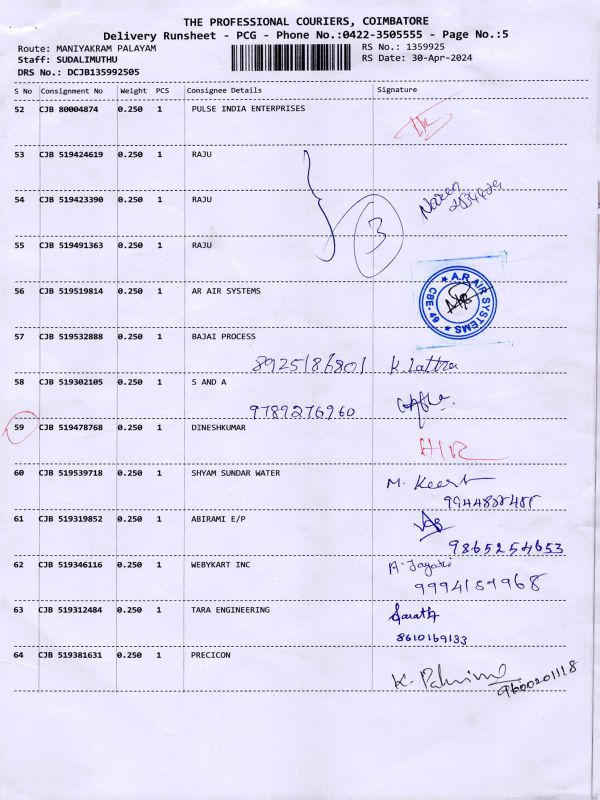 THE PROFESSIONAL COURIERS, COIMBATORE
Delivery Runsheet - PCG - Phone No.:0422-3505555 - Page No.:5
Route: MANIYAKRAM PALAYAM RS No.: 1359925
Staff: SUDALIMUTHU RS Date: 30-Apr-2024
DRS No.: DCJB135992505
S No Consignment No Weight PCS Consignee Details Signature
52 CJB 80004874 0.250 1 PULSE INDIA ENTERPRISES
53 CJB 519424619 0.250 1 RAJU
54 CJB 519423390 0.250 1 RAJU
3
55 CJB 519491363 0.250 1 RAJU
56 CJB 519519814 0.250 1 AR AIR SYSTEMS
A.R AIR SYSTEMS CBE-49
57 CJB 519532888 0.250 1 BAJAI PROCESS
8925186801 K. Lattra
58 CJB 519302105 0.250 1 S AND A
9789276960
59 CJB 519478768 0.250 1 DINESHKUMAR
60 CJB 519539718 0.250 1 SHYAM SUNDAR WATER
M. Keert
61 CJB 519319852 0.250 1 ABIRAMI E/P
9865254653
62 CJB 519346116 0.250 1 WEBYKART INC
9994157968
63 CJB 519312484 0.250 1 TARA ENGINEERING
Sarath
8610169133
64 CJB 519381631 0.250 1 PRECICON
9600201118